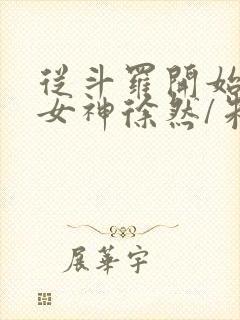 從斗羅開始
女神徐然/朱
展華宇